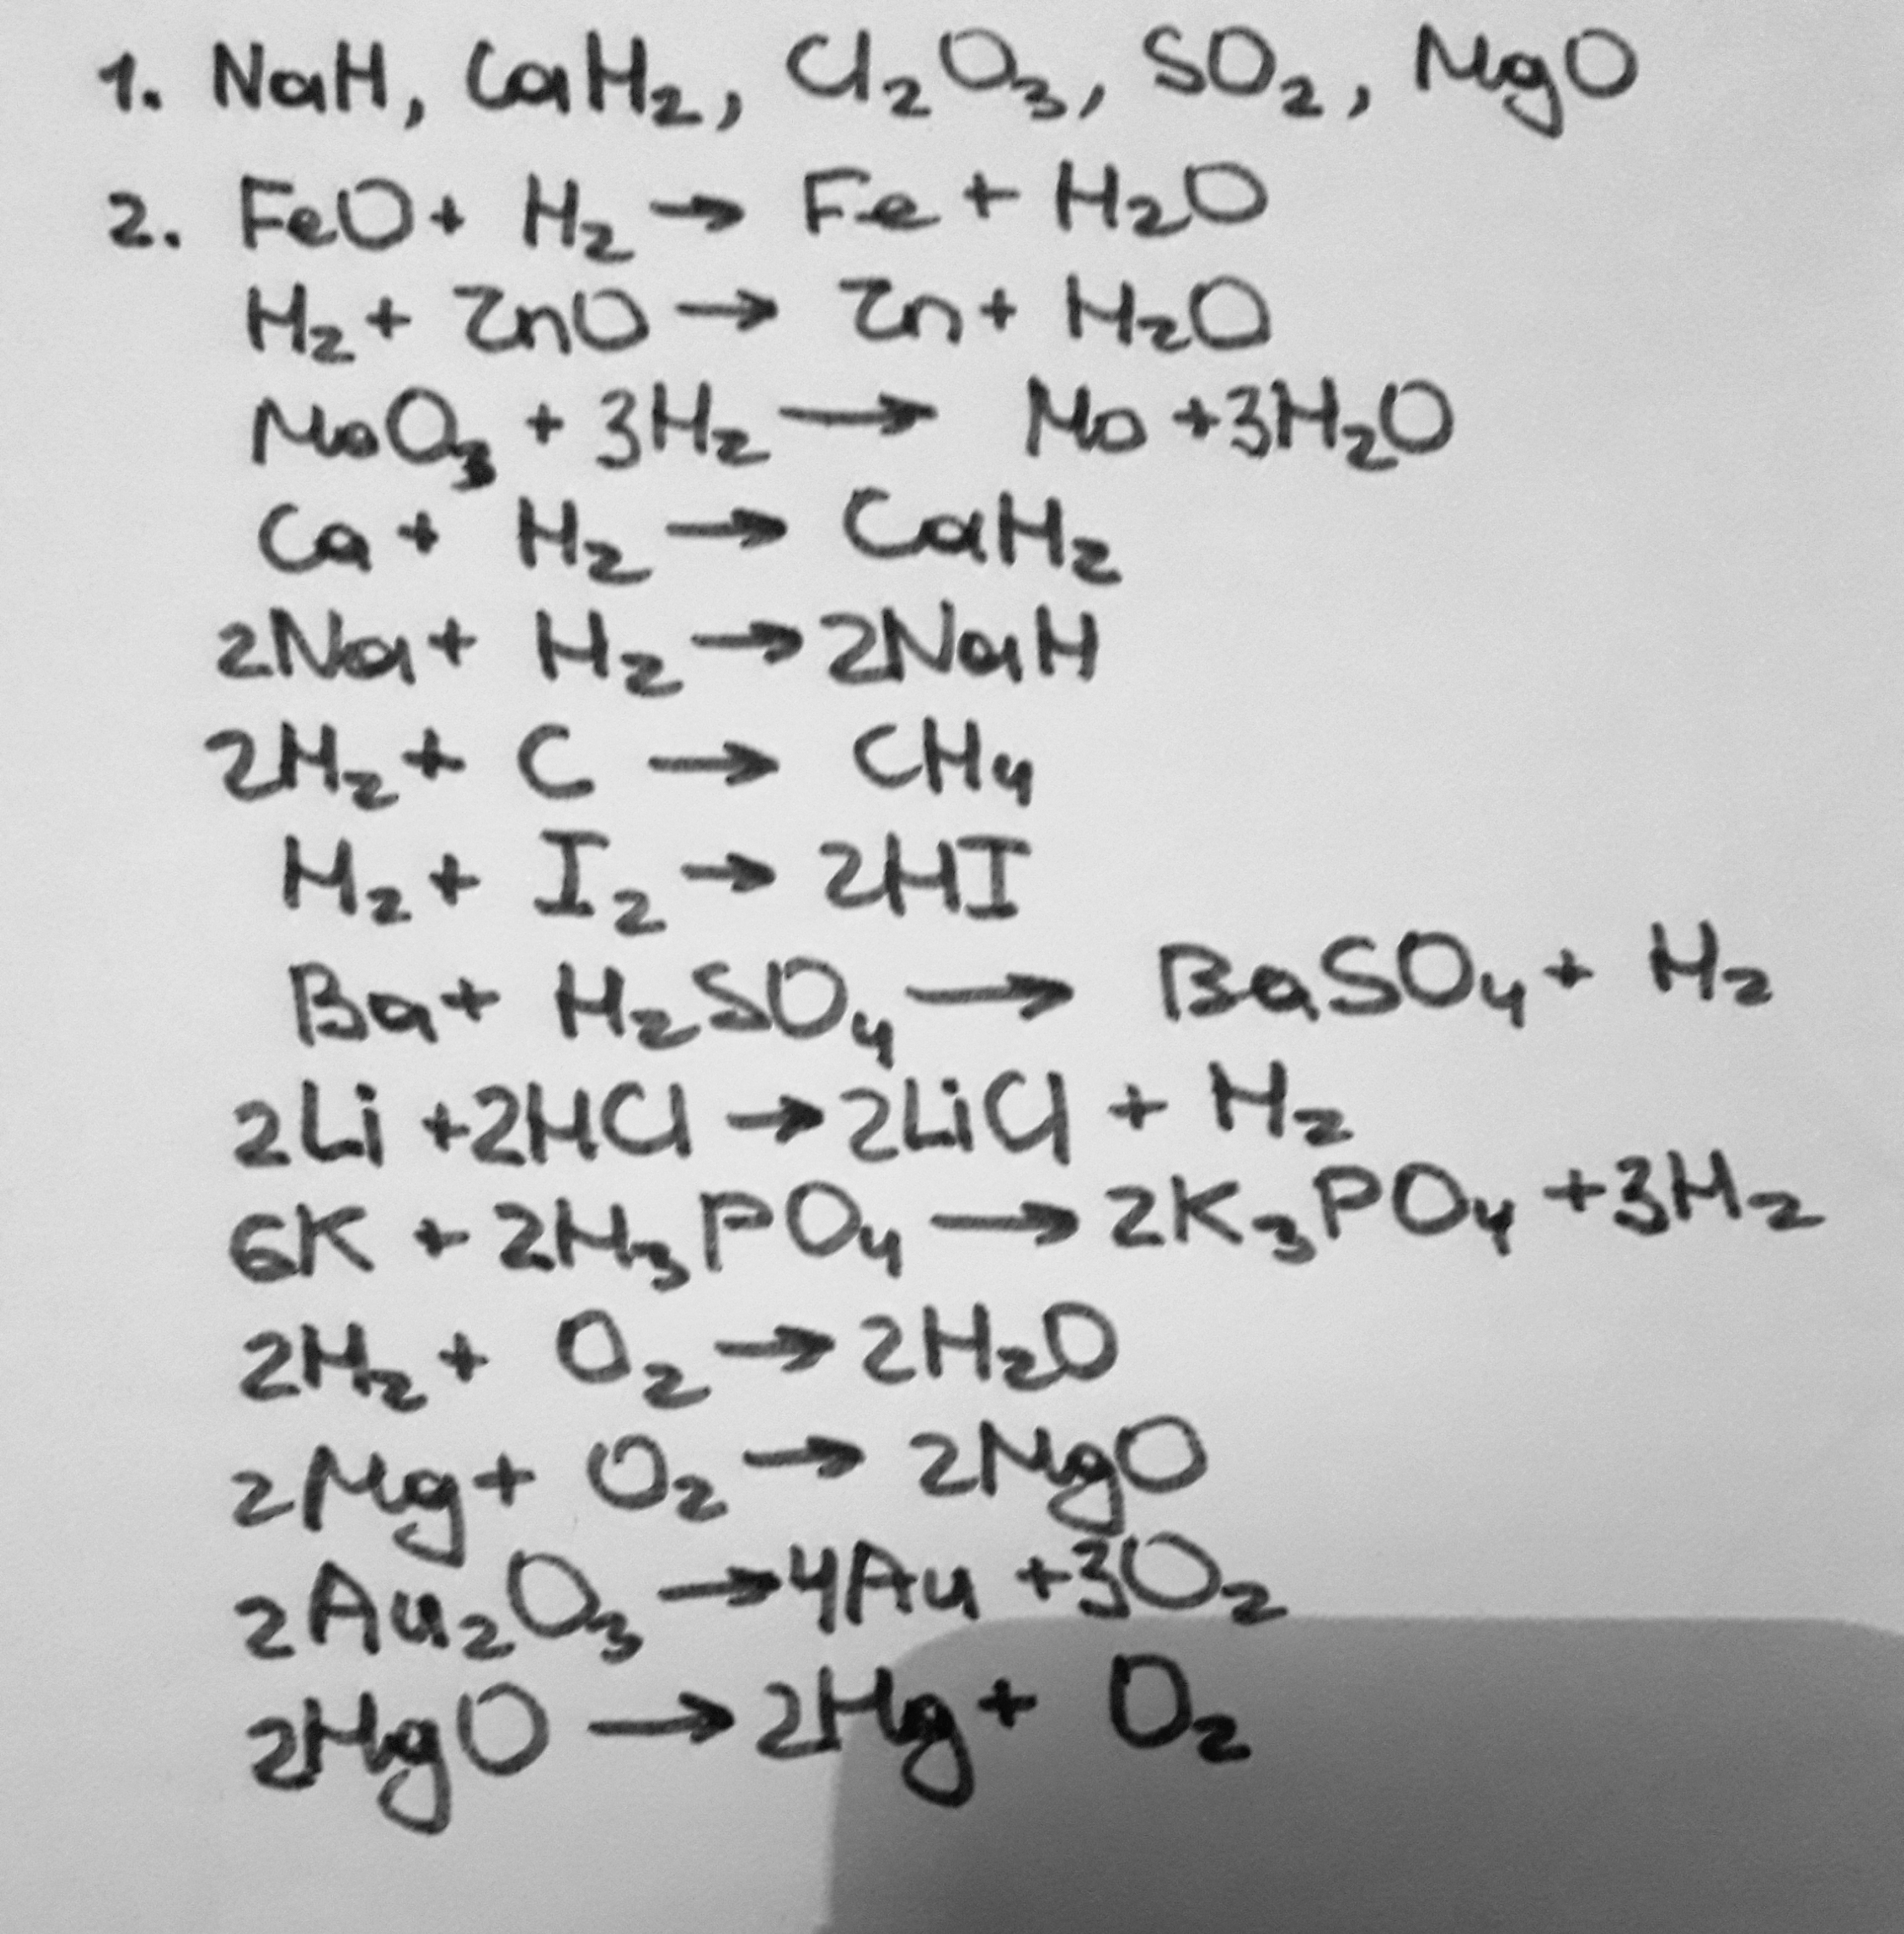 1. NaH, CaH₂, Cl₂O₃, SO₂, MgO
2. FeO + H₂ → Fe + H₂O
H₂ + ZnO → Zn + H₂O
MoO₃ + 3H₂ → Mo + 3H₂O
Ca + H₂ → CaH₂
2Na + H₂ → 2NaH
2H₂ + C → CH₄
H₂ + I₂ → 2HI
Ba + H₂SO₄ → BaSO₄ + H₂
2Li + 2HCl → 2LiCl + H₂
6K + 2H₃PO₄ → 2K₃PO₄ + 3H₂
2H₂ + O₂ → 2H₂O
2Mg + O₂ → 2MgO
2Au₂O₃ → 4Au + 3O₂
2HgO → 2Hg + O₂